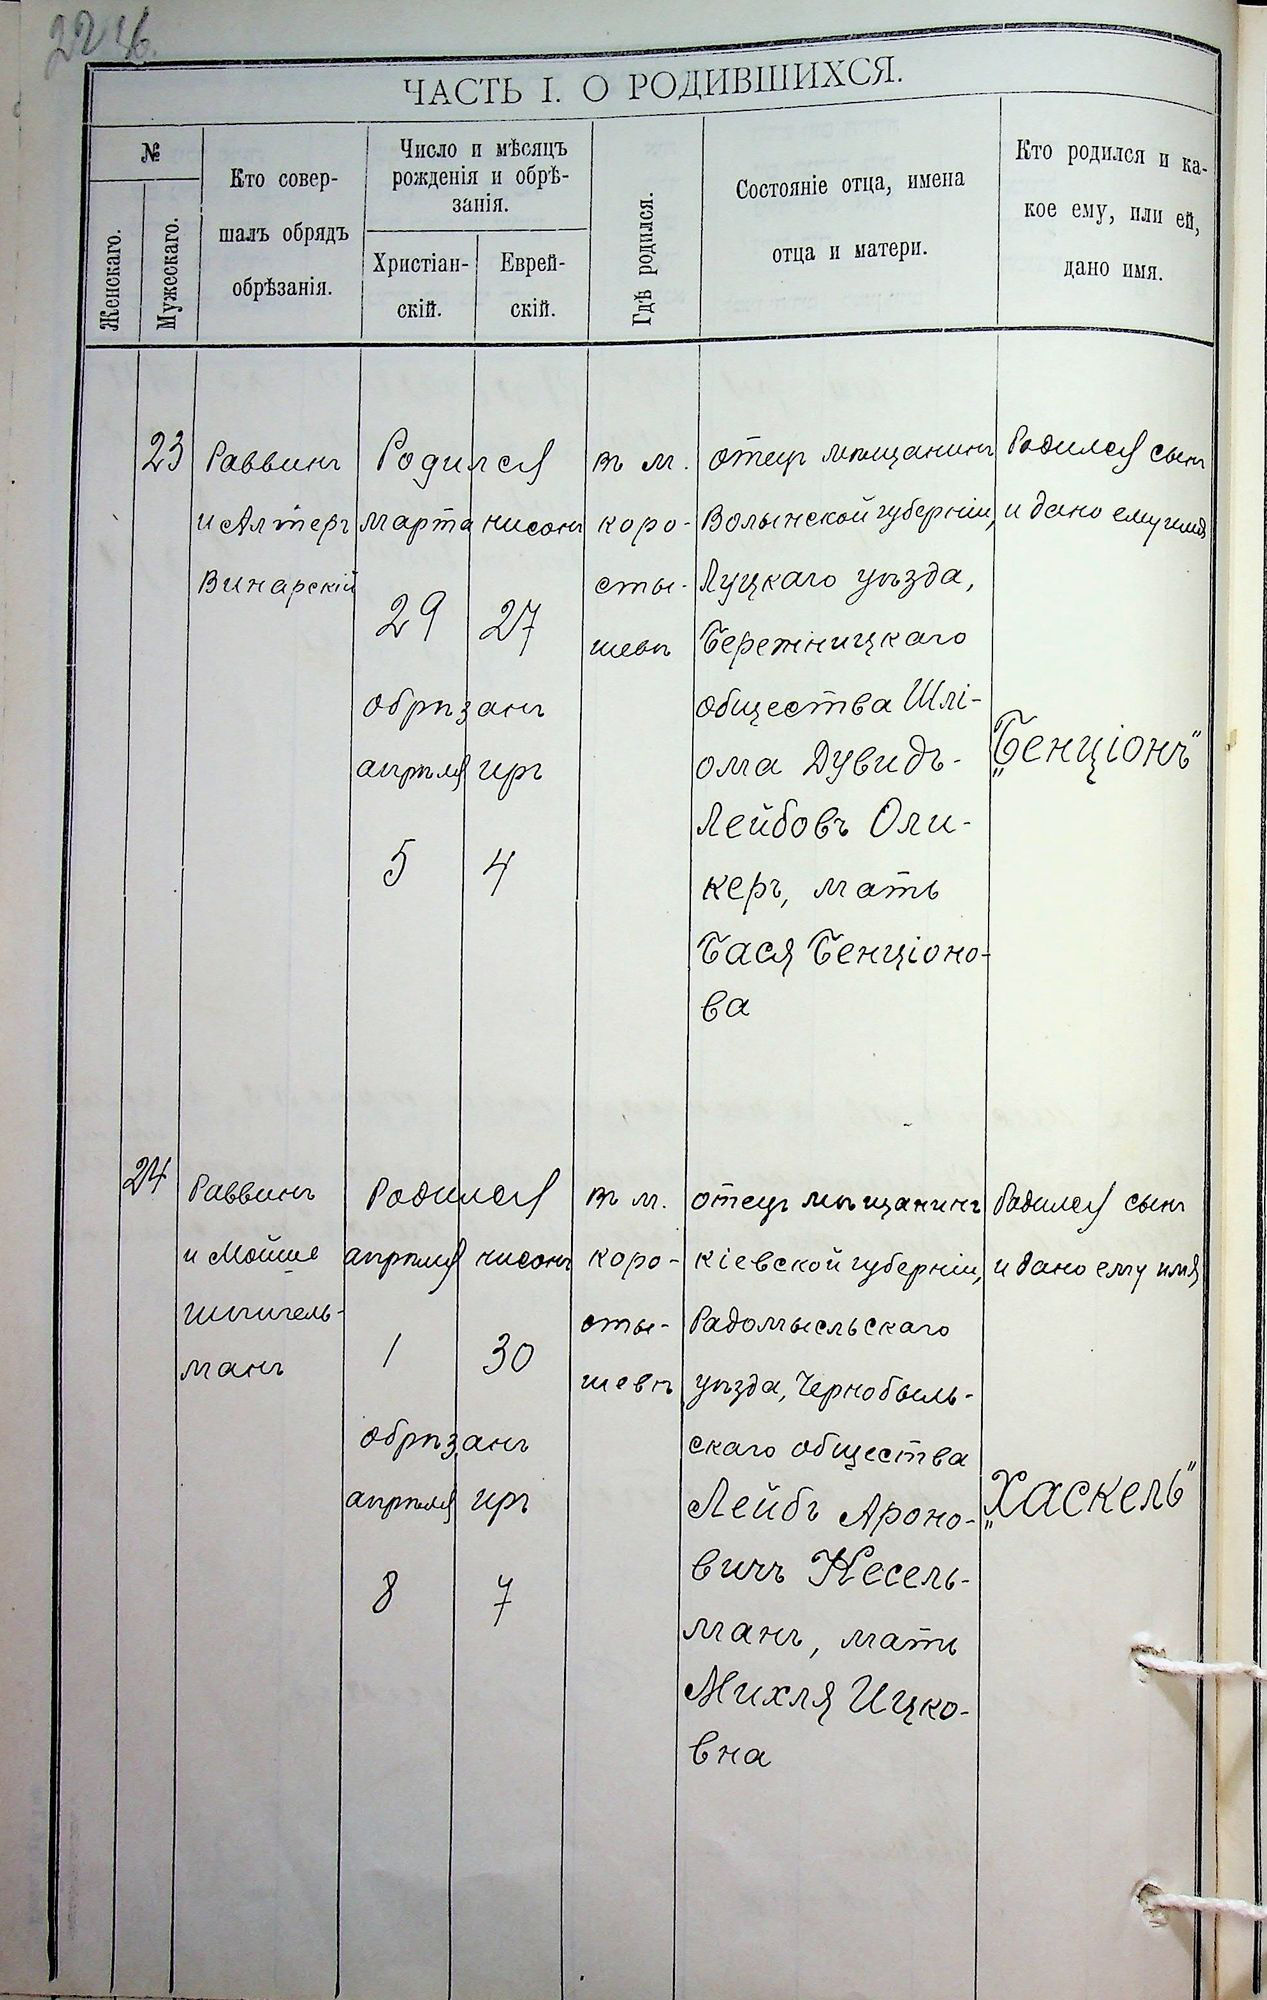 ЧАСТЬ I. О РОДИВШИХСЯ.
№
Женскаго.
Мужескаго.
Кто совер-
шалъ обрядъ
обрѣзанія.
Число и мѣсяцъ
рожденія и обрѣ-
занія.
Христіан-
скій.
Еврей-
скій.
Гдѣ родился.
Состояніе отца, имена
отца и матери.
Кто родился и ка-
кое ему, или ей,
дано имя.
23
Раввинъ
и Алтеръ
Винарскій
Родился
марта нисонъ
29 27
обрѣзанъ
апрѣля иръ
5 4
въ м.
коро-
сты-
шевѣ
отецъ мѣщанинъ
Волынской губерніи,
Луцкаго уѣзда,
Бережницкаго
общества Шлі-
ома Дувидъ-
Лейбовъ Оли-
керъ, мать
Бася Бенціоно-
ва
Родился сынъ
и дано ему имя
„Бенціонъ“
24
Раввинъ
и Мойше
шпигель-
манъ
Родился
апрѣля нисонъ
1 30
обрѣзанъ
апрѣля иръ
8 7
въ м.
коро-
сты-
шевѣ
отецъ мѣщанинъ
кіевской губерніи,
Радомысльскаго
уѣзда, Чернобыль-
скаго общества
Лейбъ Ароно-
вичъ Кесель-
манъ, мать
Михля Ицко-
вна
Родился сынъ
и дано ему имя
„Хаскель“